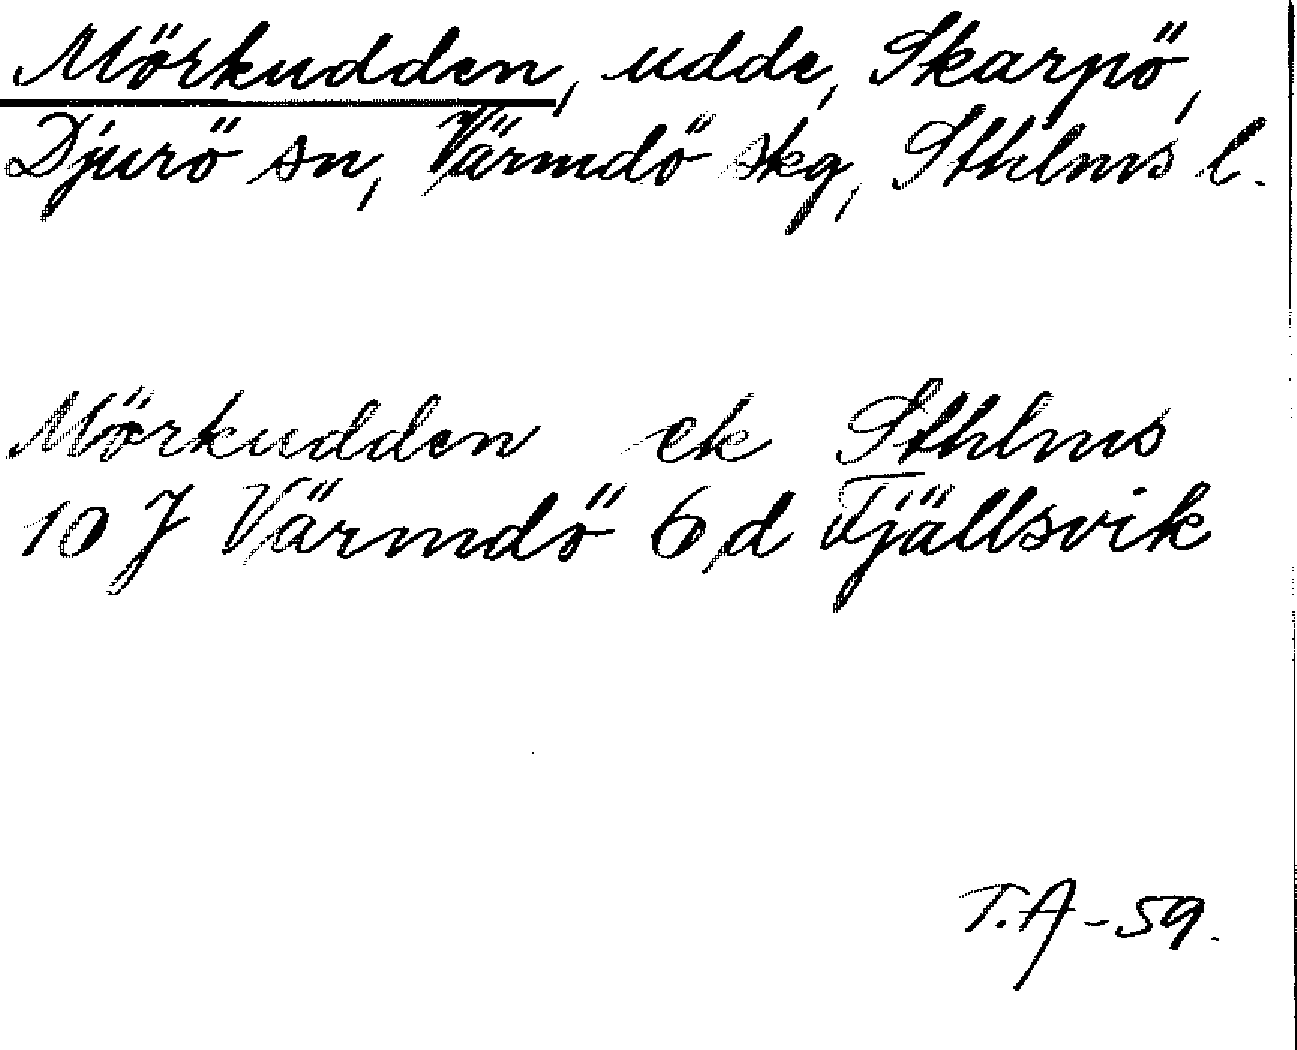 Mörkudden, udde, Skarpö,
Djurö sn, Värmdö skg, Sthlms l.
Mörkudden ek Sthlms
10 J Värmdö 6,d Fjällsvik
T.A -59.